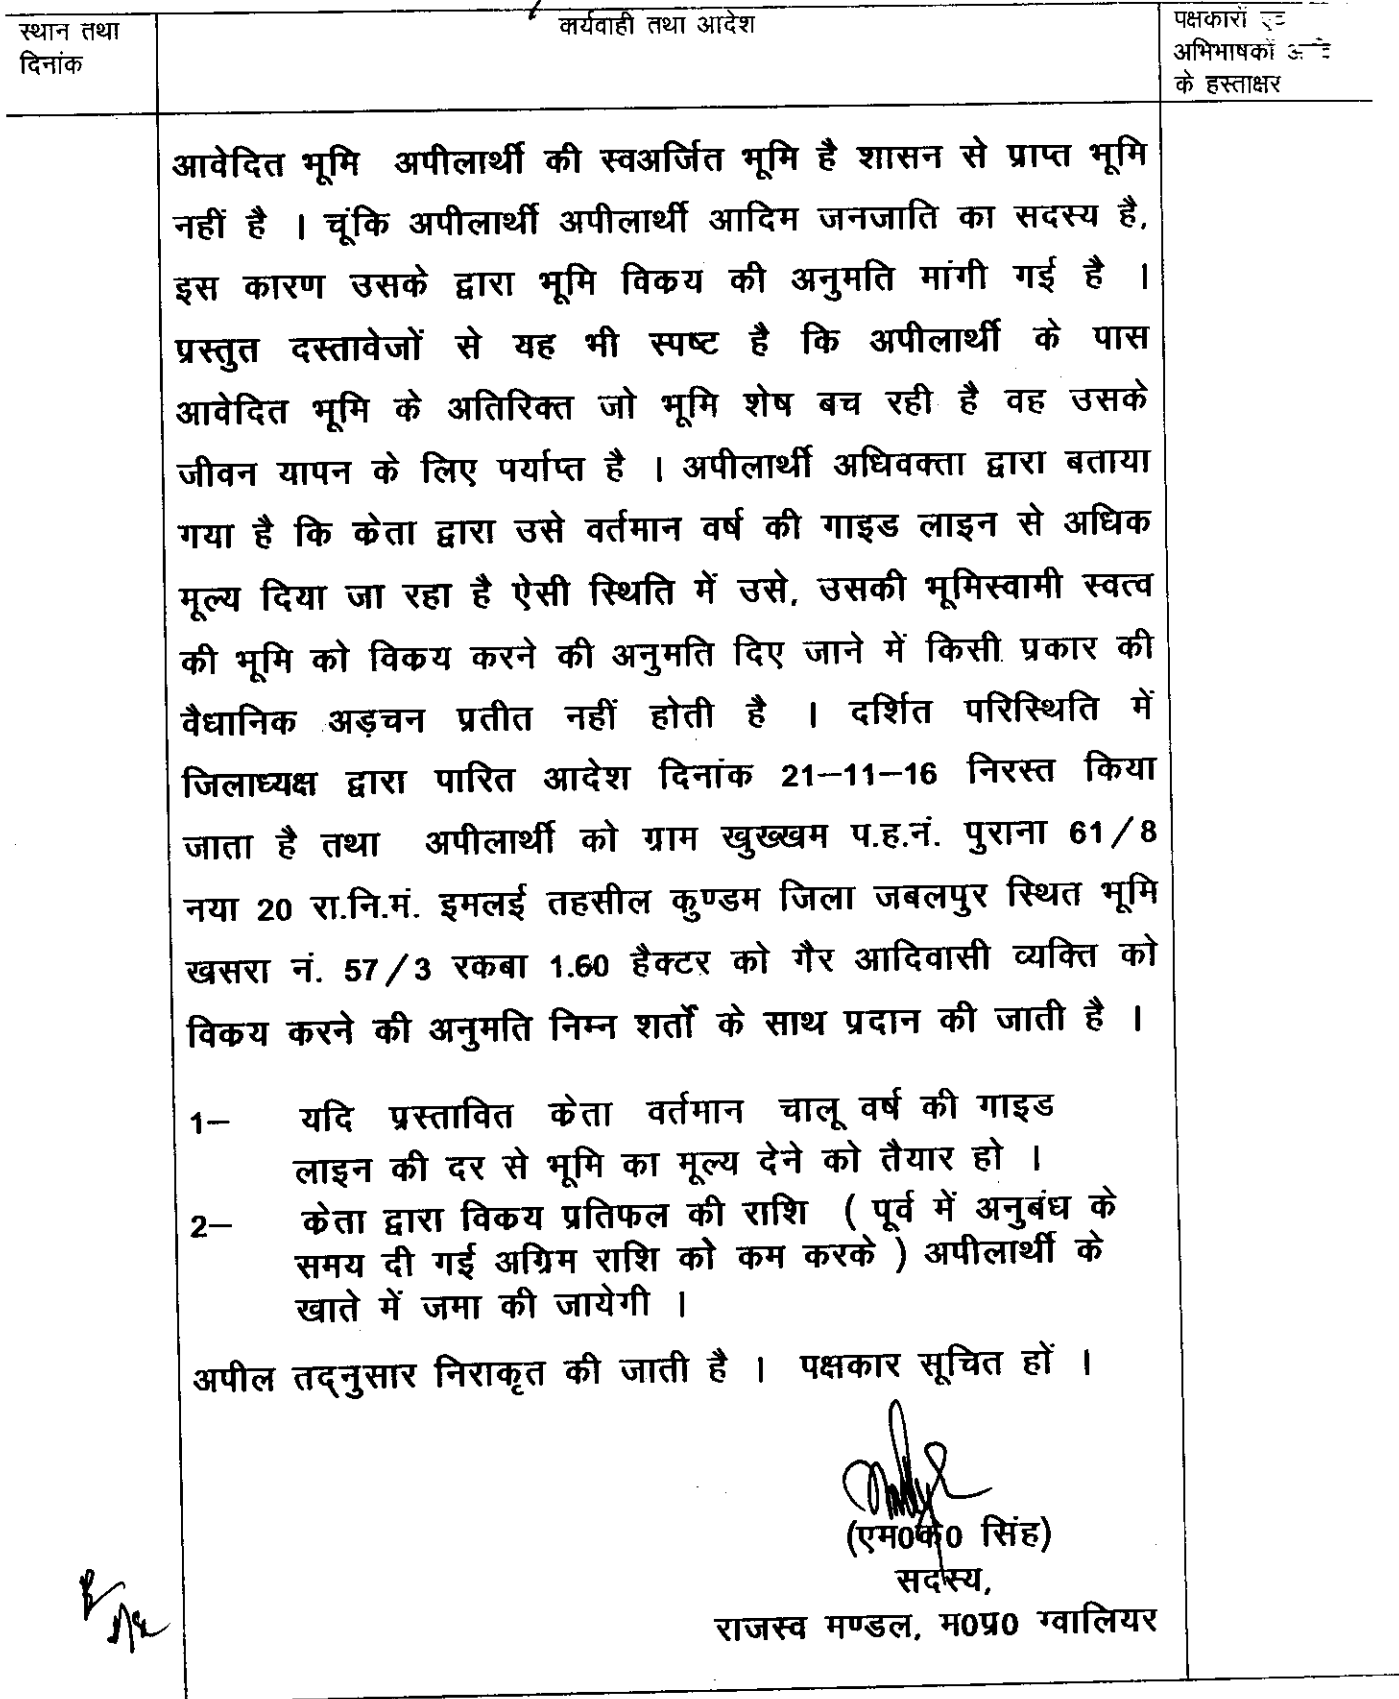 स्थान तथा
दिनांक
कार्यवाही तथा आदेश
पक्षकारों
अभिभाषकों
के हस्ताक्षर
आवेदित भूमि अपीलार्थी की स्वअर्जित भूमि है शासन से प्राप्त भूमि
नहीं है । चूंकि अपीलार्थी अपीलार्थी आदिम जनजाति का सदस्य है,
इस कारण उसके द्वारा भूमि विकय की अनुमति मांगी गई है ।
प्रस्तुत दस्तावेजों से यह भी स्पष्ट है कि अपीलार्थी के पास
आवेदित भूमि के अतिरिक्त जो भूमि शेष बच रही है वह उसके
जीवन यापन के लिए पर्याप्त है । अपीलार्थी अधिवक्ता द्वारा बताया
गया है कि केता द्वारा उसे वर्तमान वर्ष की गाइड लाइन से अधिक
मूल्य दिया जा रहा है ऐसी स्थिति में उसे, उसकी भूमिस्वामी स्वत्व
की भूमि को विकय करने की अनुमति दिए जाने में किसी प्रकार की
वैधानिक अड़चन प्रतीत नहीं होती है । दर्शित परिस्थिति में
जिलाध्यक्ष द्वारा पारित आदेश दिनांक 21–11–16 निरस्त किया
जाता है तथा अपीलार्थी को ग्राम खुख्खम प.ह.नं. पुराना 61/8
नया 20 रा.नि.मं. इमलई तहसील कुण्डम जिला जबलपुर स्थित भूमि
खसरा नं. 57/3 रकबा 1.60 हैक्टर को गैर आदिवासी व्यक्ति को
विकय करने की अनुमति निम्न शर्तों के साथ प्रदान की जाती है ।
1– यदि प्रस्तावित केता वर्तमान चालू वर्ष की गाइड
लाइन की दर से भूमि का मूल्य देने को तैयार हो ।
2– केता द्वारा विकय प्रतिफल की राशि ( पूर्व में अनुबंध के
समय दी गई अग्रिम राशि को कम करके ) अपीलार्थी के
खाते में जमा की जायेगी ।
अपील तद्नुसार निराकृत की जाती है । पक्षकार सूचित हों ।
(एम0के0 सिंह)
सदस्य,
राजस्व मण्डल, म0प्र0 ग्वालियर